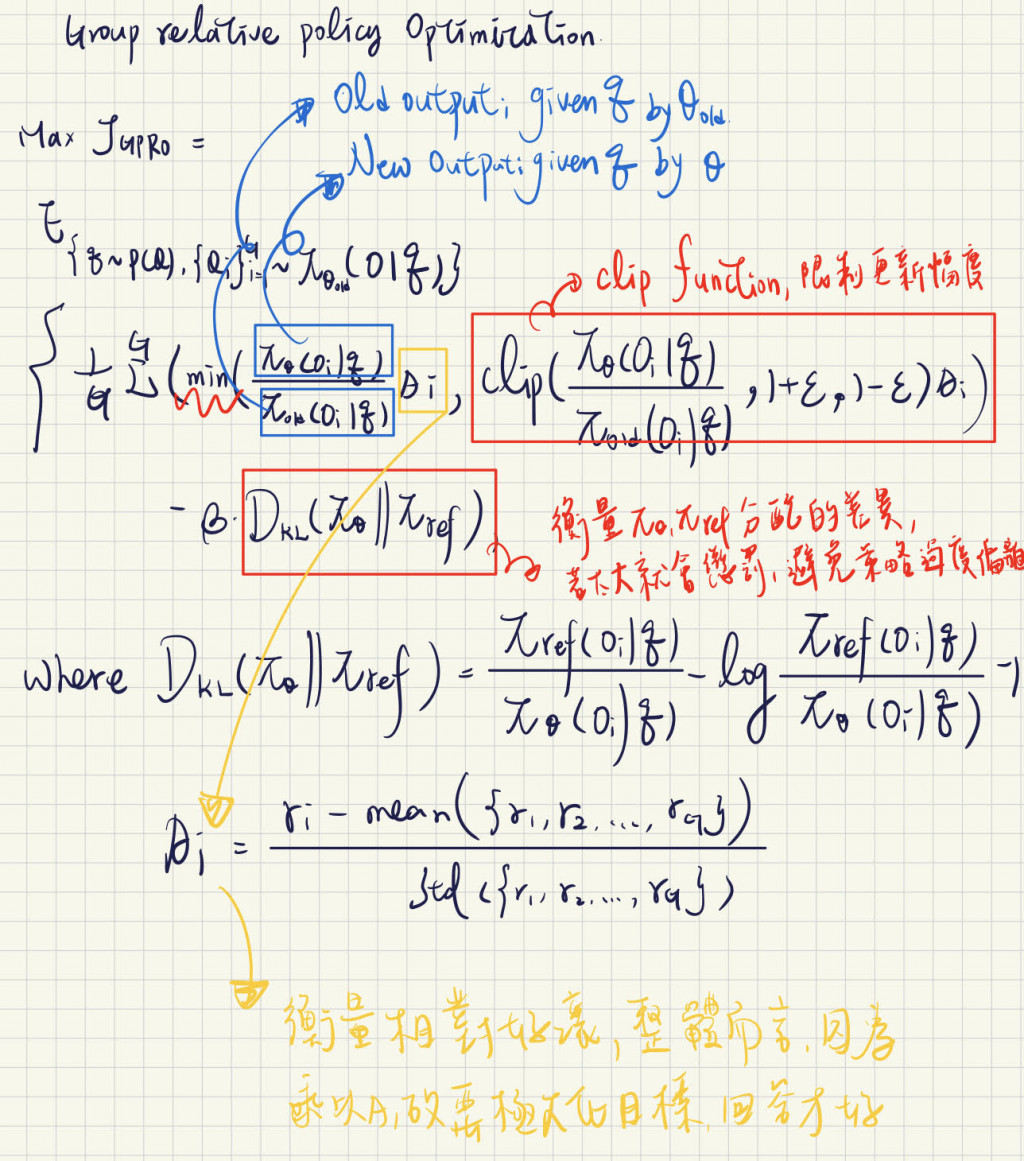 Group relative policy Optimization
Old output: given q by θold.
Max JGPRO =
New Output: given q by θ
E{q~p(Q), {Oi}ᴳi=1 ~ πθold(O|q)}
clip function, 限制更新幅度
{ 1/G Σᴳ (min( πθ(Oi|q) / πold(Oi|q) Ai, Clip( πθ(Oi|q) / πold(Oi|q) , 1+ε, 1-ε) Ai)
- β· DKL(πθ‖πref)
衡量 πθ, πref 分配的差異,
若太大就會懲罰, 避免策略過度偏離
where DKL(πθ‖πref) = πref(Oi|q) / πθ(Oi|q) - log πref(Oi|q) / πθ(Oi|q) - 1
Ai = ri - mean({r1, r2, ..., rG}) / std({r1, r2, ..., rG})
衡量相對好壞, 整體而言, 因為
乘以A, 故要極大化目標, 回答才好